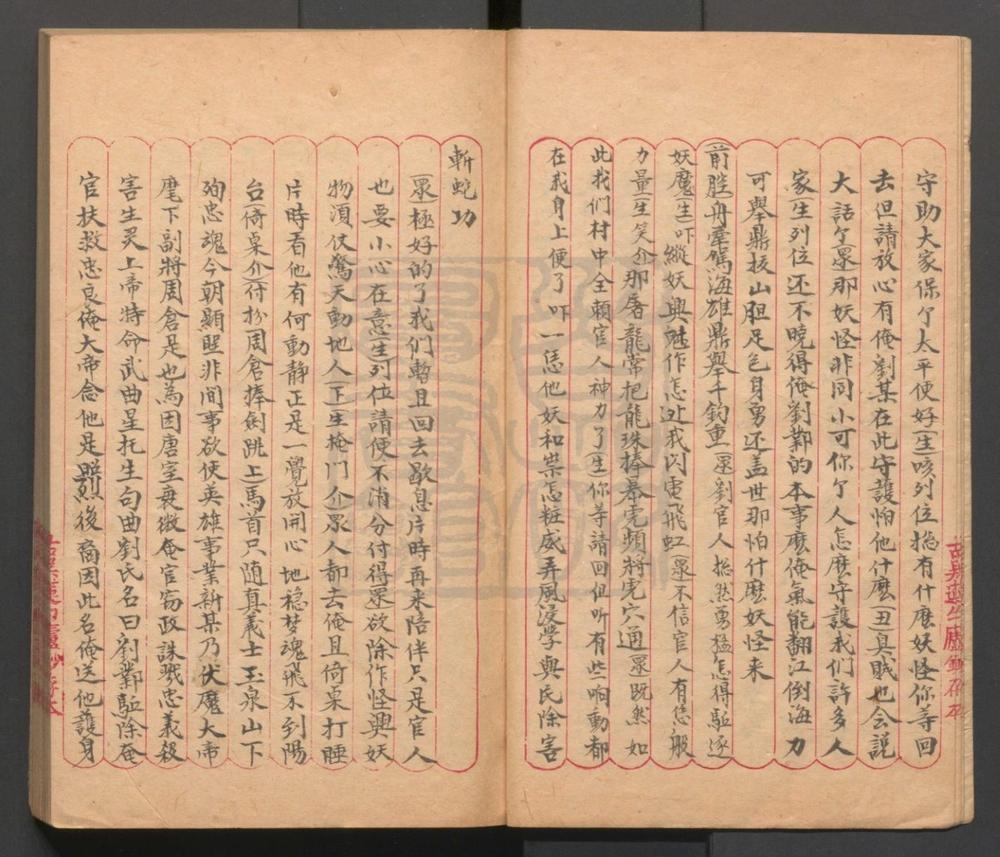 守助大家保亇太平便好(生)咳列位揔有什麽妖怪你等回
去但請放心有俺劉某在此守護怕他什麽(丑)真賊也会説
大話亇(眾)那妖怪非同小可你亇人怎麽守護我们許多人
家(生)列位还不曉得俺劉鄴的本事麽俺氣能翻江倒海力
可舉鼎拔山胆足包身勇还盖世那怕什麽妖怪来
(前腔)舟牽駕海雄鼎舉千鈞重(眾)劉官人揔然勇猛怎得駈逐
妖魔(生)吓縱妖興魅作怎让我闪電飛虹(眾)不信官人有恁般
力量(生笑介)那屠龍常把龍珠捧搴虎頻將虎穴通(眾)既然如
此我们村中全賴官人神力了(生)你等請回但听有些响動都
在我身上便了吓一恁他妖和祟怎粧威弄風浸學與民除害
斬蛇功
(眾)極好的了我们暫且回去歇息片時再来陪伴只是官人
也要小心在意(生)列位請便不消分付得(眾)欲除作怪興妖
物湏仗驚天動地人(下)(生掩門介)眾人都去俺且倚桌打睡
片時看他有何動静正是一覺放開心地穏梦魂飛不到陽
台(倚桌介)(付扮周倉捧劍跳上)馬首只随真義士玉泉山下
殉忠魂今朝顯聖非间事欲使英雄事業新某乃伏魔大帝
麾下副將周倉是也為因唐室衰微奄官窃政誅戮忠義殺
害生灵上帝特命武曲星托生句曲劉氏名曰劉鄴駈除奄
官扶救忠良俺大帝念他是照烈後裔因此名俺送他護身